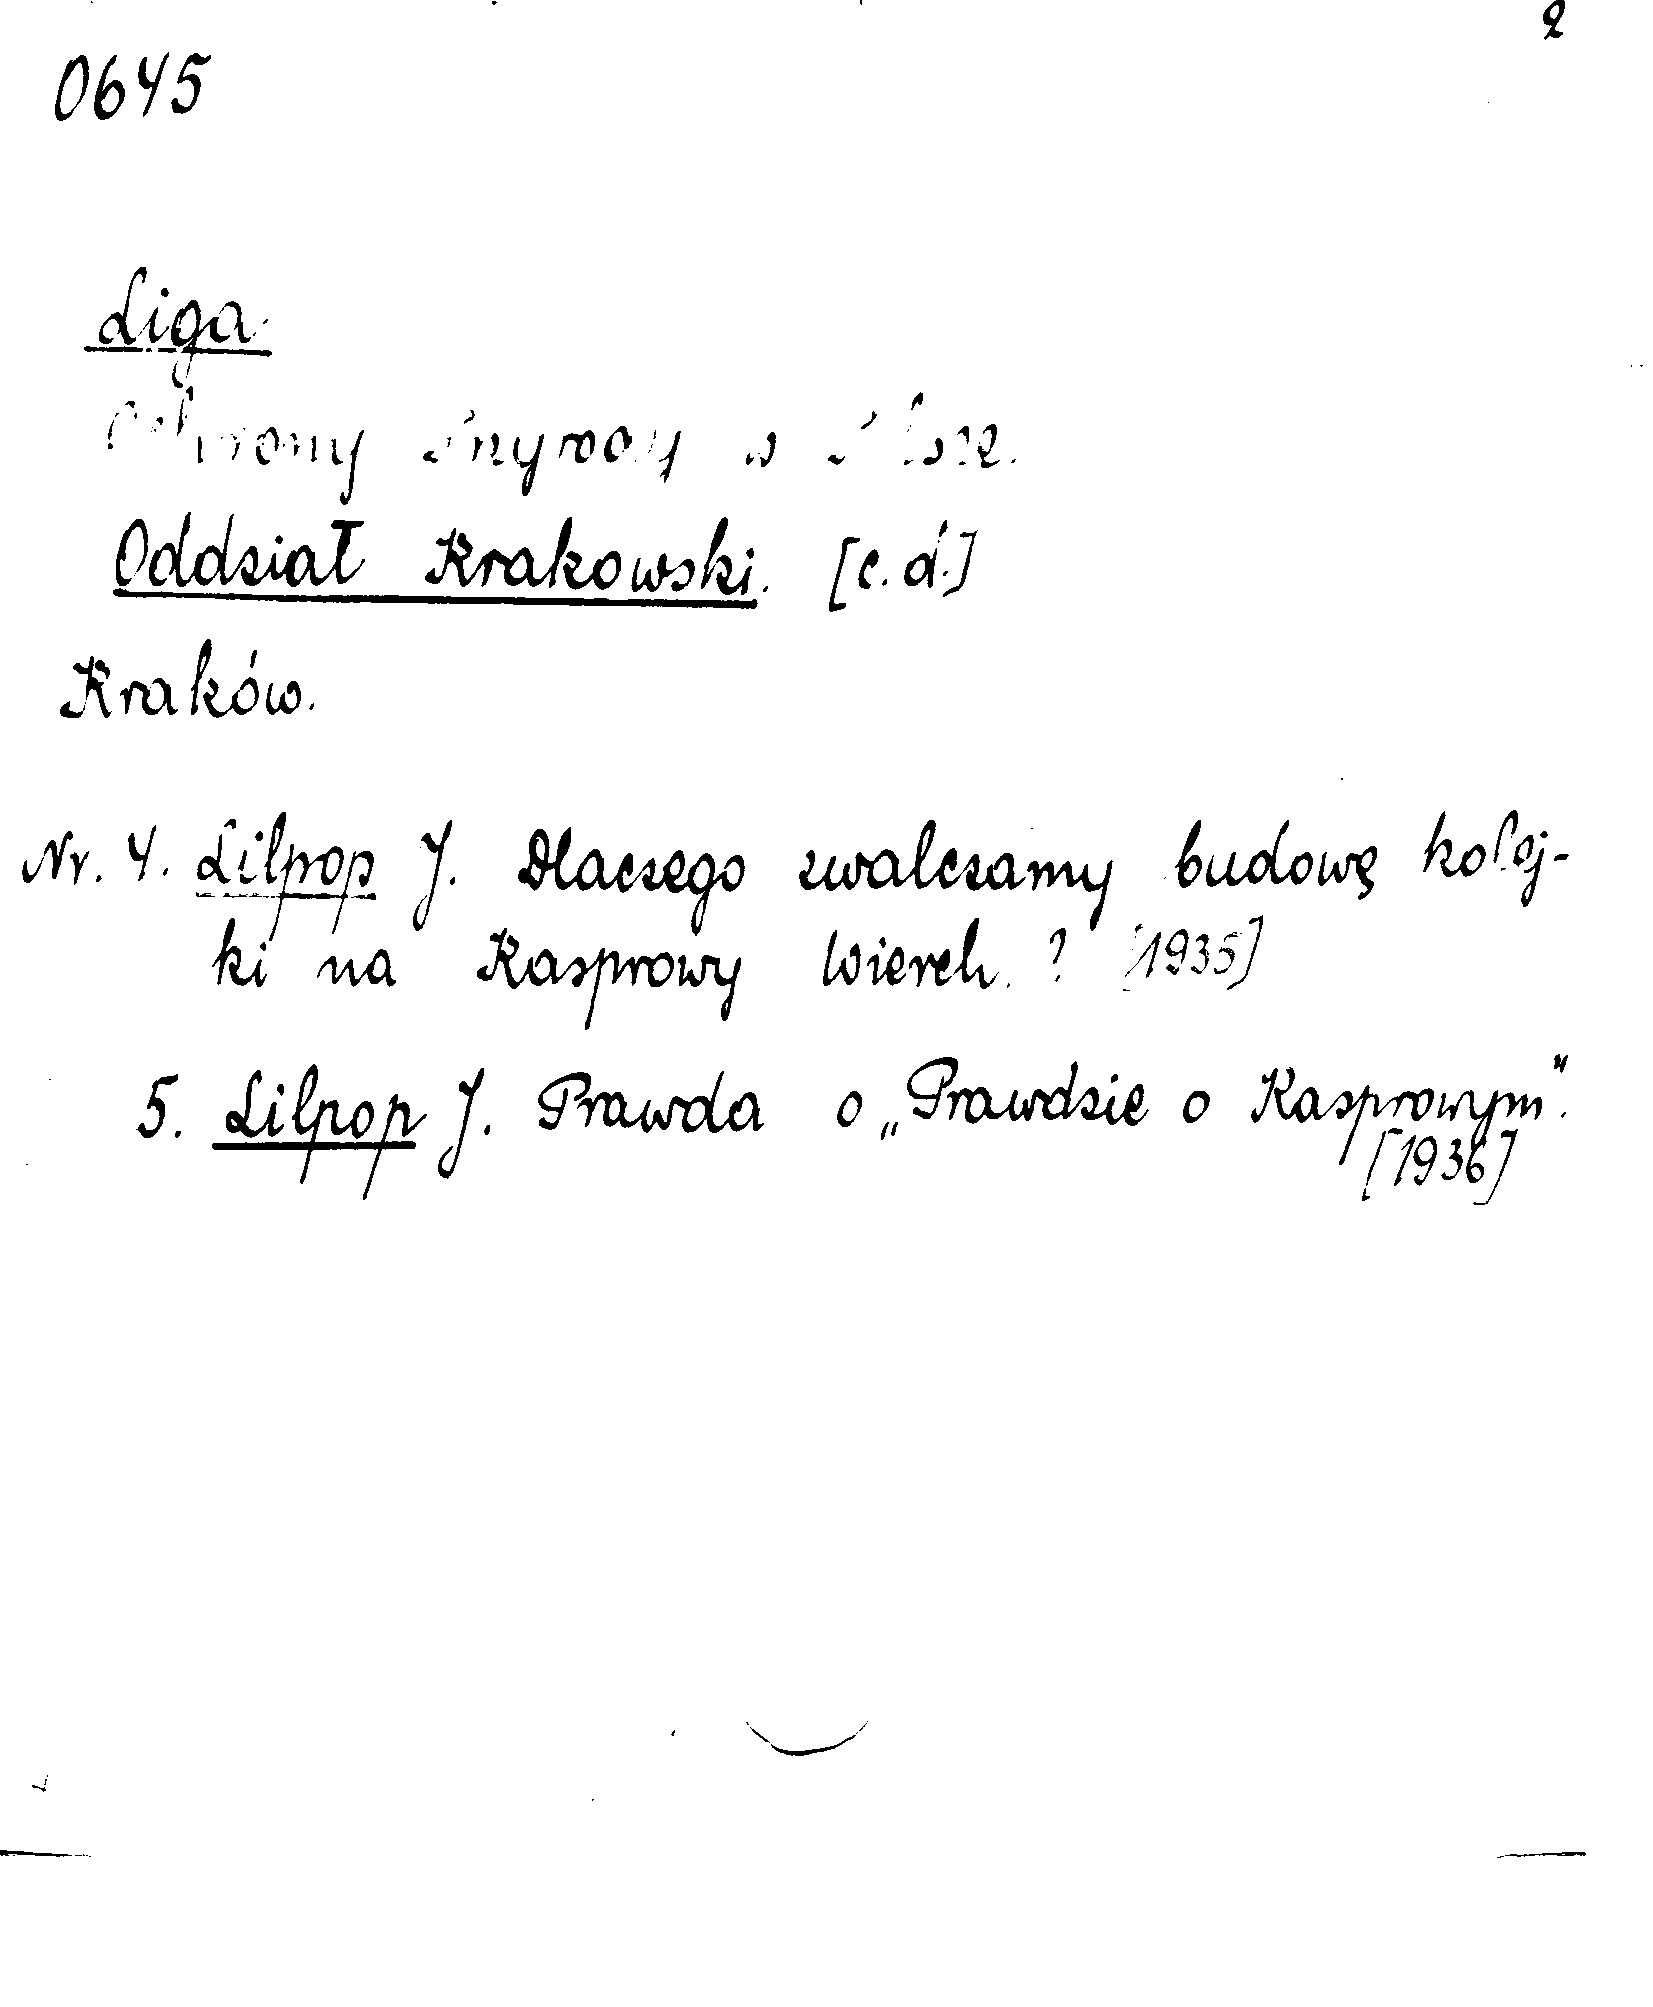 2
0645
Liga
Ochrony Przyrody w Polsce.
Oddział Krakowski. [c.d.]
Kraków.
Nr. 4. Lilpop J. Dlaczego zwalczamy budowę kolej-
ki na Kasprowy Wierch. ? [1935]
5. Lilpop J. Prawda o „Prawdzie o Kasprowym".
[1936]